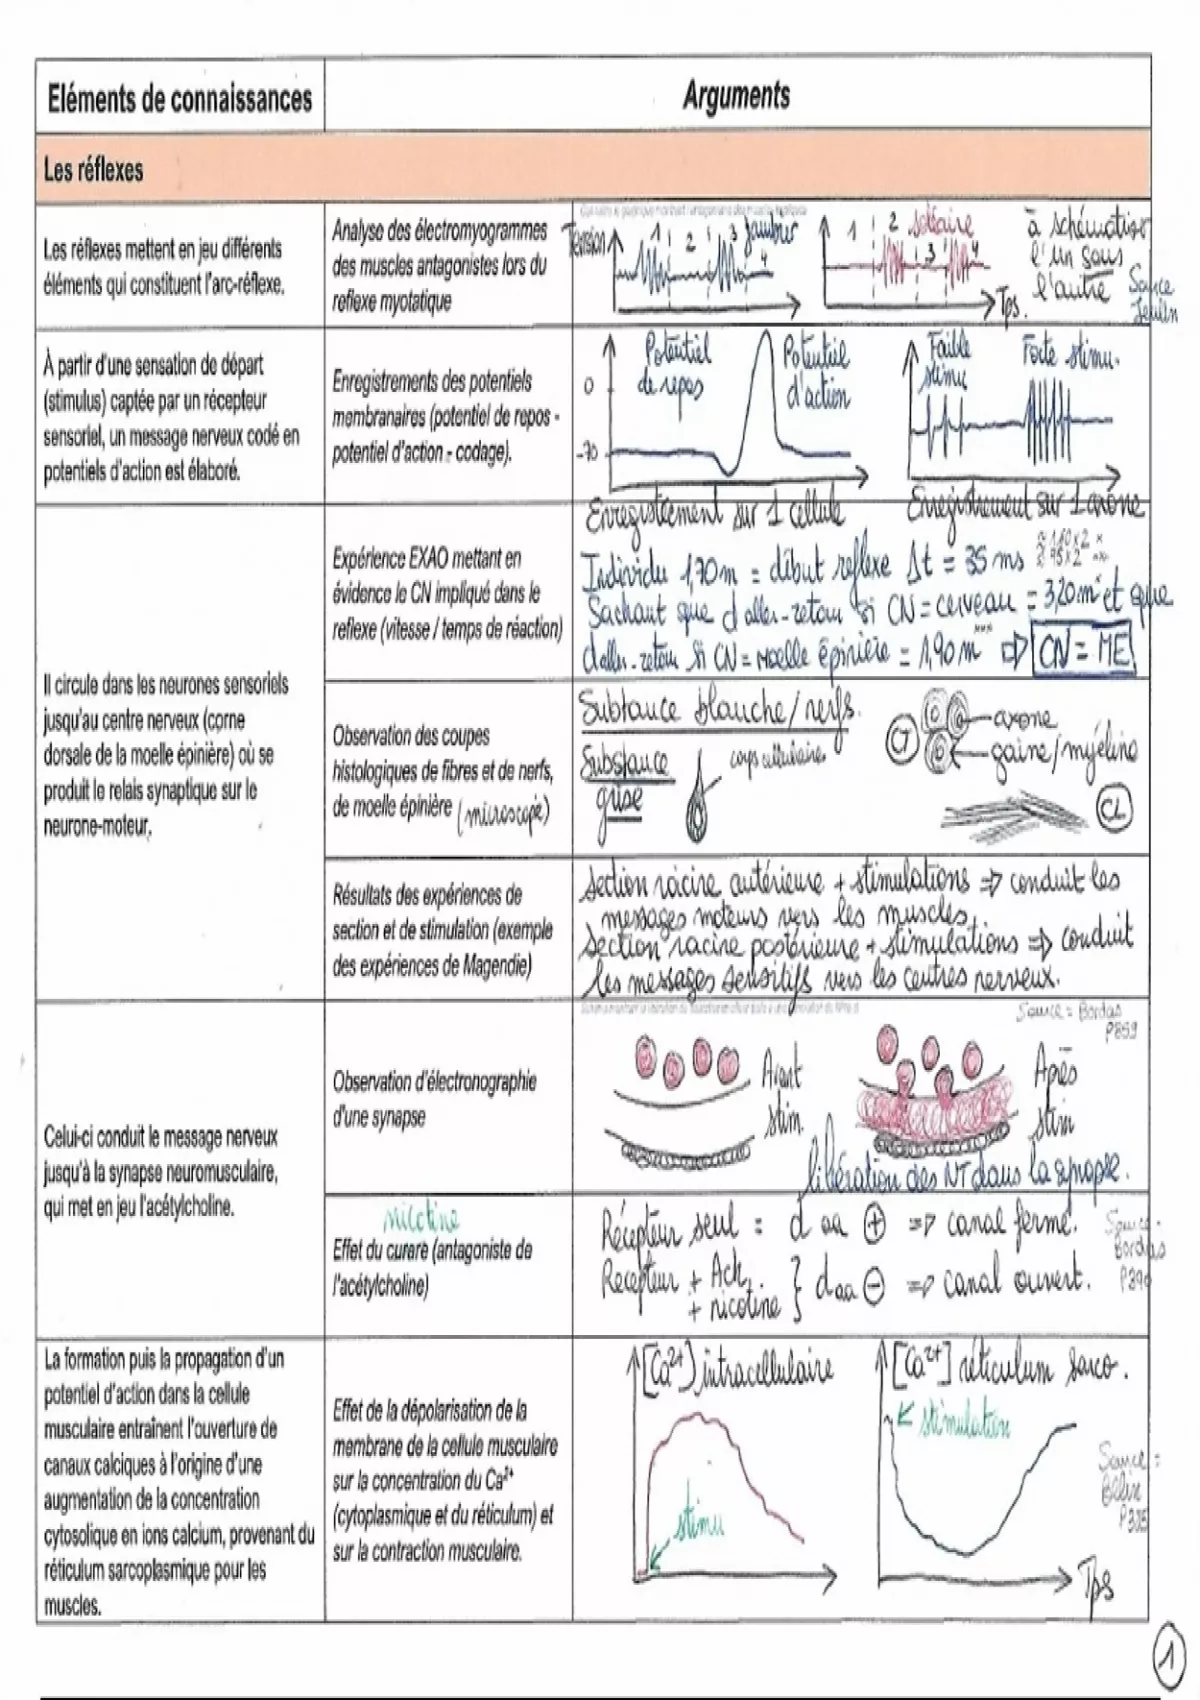 Eléments de connaissances
Arguments
Les réflexes
Les réflexes mettent en jeu différents
éléments qui constituent l'arc-réflexe.
Analyse des électromyogrammes
des muscles antagonistes lors du
reflexe myotatique
Tension
1
2
3
Jambier
4
1
2
Soléaire
3
4
Tps.
à schématiser
l'un sous
l'autre
Source
Jeulin
À partir d'une sensation de départ
(stimulus) captée par un récepteur
sensoriel, un message nerveux codé en
potentiels d'action est élaboré.
Enregistrements des potentiels
membranaires (potentiel de repos -
potentiel d'action - codage).
0
-70
Potentiel
de repos
Potentiel
d'action
Faible
stimu
Forte stimu.
Enregistrement sur 1 cellule
Enregistrement sur 1 axone
Il circule dans les neurones sensoriels
jusqu'au centre nerveux (corne
dorsale de la moelle épinière) où se
produit le relais synaptique sur le
neurone-moteur.
Expérience EXAO mettant en
évidence le CN impliqué dans le
reflexe (vitesse / temps de réaction)
Individu 1,70m = début reflexe Δt = 35 ms
Sachant que d aller-retour si CN = cerveau = 3,20m et que
d aller-retour si CN = Moelle épinière = 1,90m ⇒ CN = ME
Observation des coupes
histologiques de fibres et de nerfs,
de moelle épinière (microscope)
Substance blanche / nerfs.
Substance
grise
corps cellulaires
CT
axone
gaine/myéline
CL
Résultats des expériences de
section et de stimulation (exemple
des expériences de Magendie)
Section racine antérieure + stimulations ⇒ conduit les
messages moteurs vers les muscles.
Section racine postérieure + stimulations ⇒ conduit
les messages sensitifs vers les centres nerveux.
Celui-ci conduit le message nerveux
jusqu'à la synapse neuromusculaire,
qui met en jeu l'acétylcholine.
Observation d'électronographie
d'une synapse
Source = Bordas
P359
Avant
stim.
Après
stim
libération des NT dans la synapse.
nicotine
Effet du curare (antagoniste de
l'acétylcholine)
Récepteur seul = d aa ⊕ ⇒ canal fermé.
Recepteur + Ach
+ nicotine } d aa ⊖ ⇒ canal ouvert.
Source =
Bordas
La formation puis la propagation d'un
potentiel d'action dans la cellule
musculaire entraînent l'ouverture de
canaux calciques à l'origine d'une
augmentation de la concentration
cytosolique en ions calcium, provenant du
réticulum sarcoplasmique pour les
muscles.
Effet de la dépolarisation de la
membrane de la cellule musculaire
sur la concentration du Ca²⁺
(cytoplasmique et du réticulum) et
sur la contraction musculaire.
[Ca²⁺] intracellulaire
stimu
[Ca²⁺] réticulum sarco.
stimulation
Tps
Source =
Belin
1